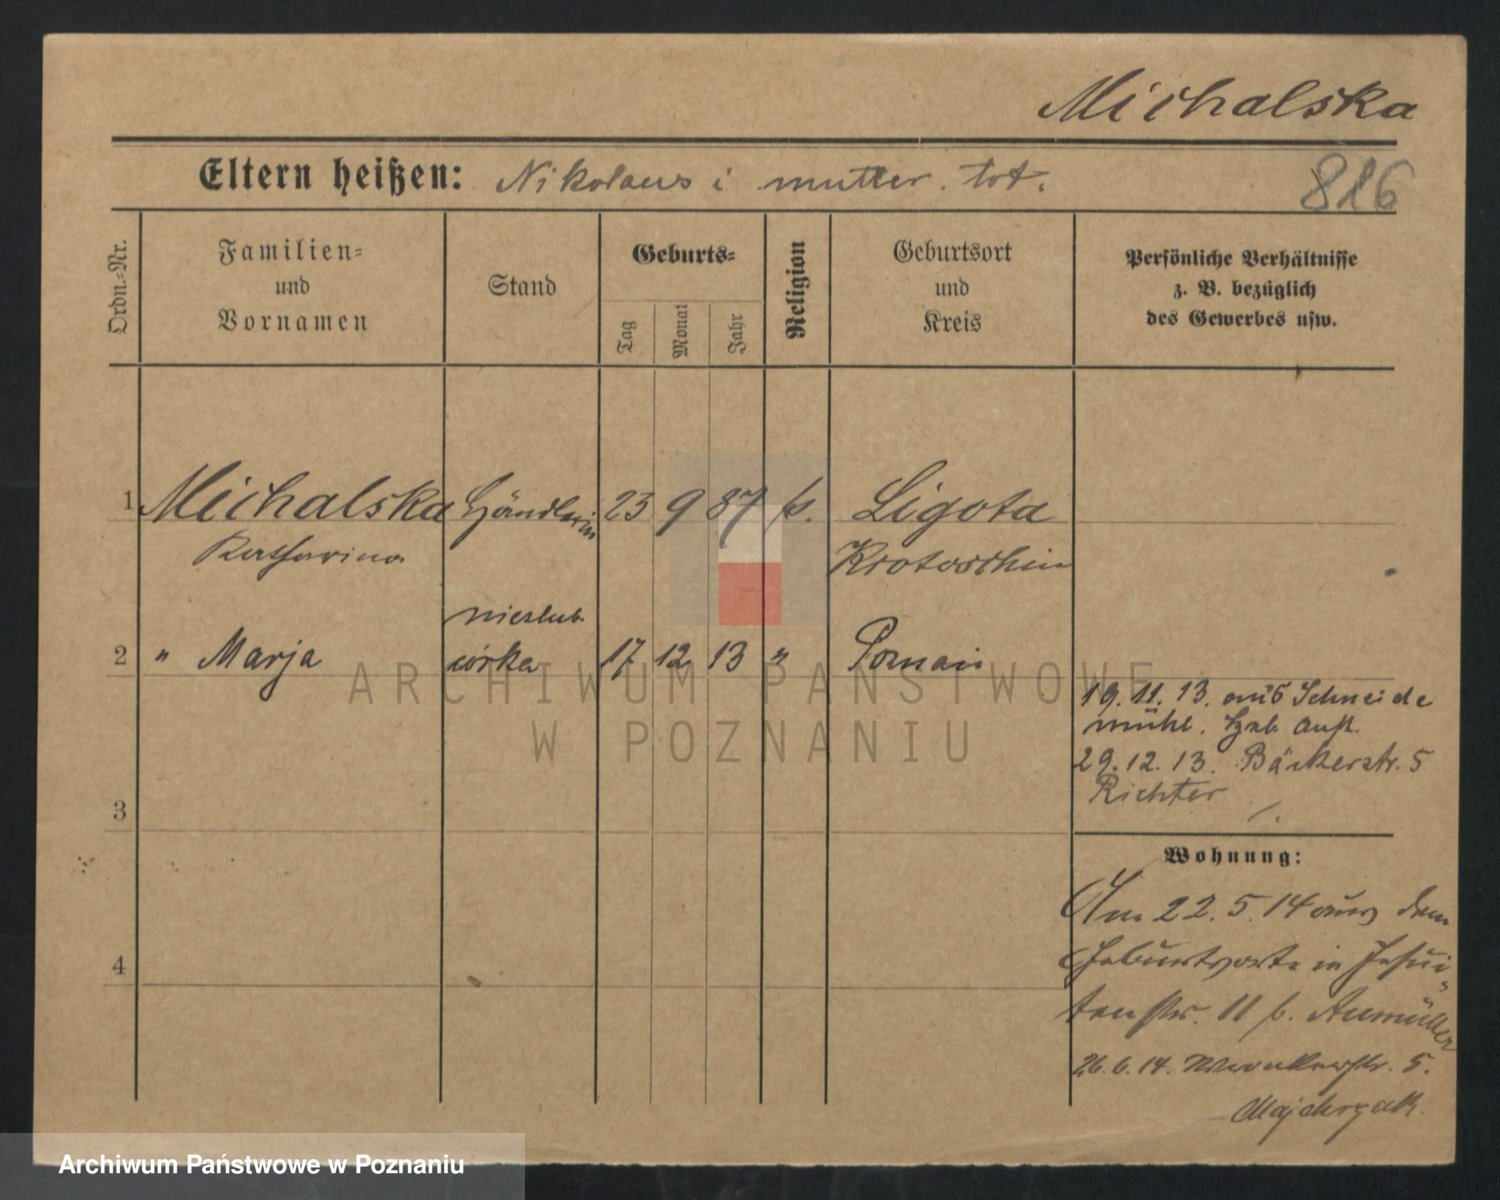 Michalska
Eltern heißen: Nikolaus i mutter. tot.
816
Ordn.-Nr.
Familien-
und
Vornamen
Stand
Geburts-
Tag
Monat
Jahr
Religion
Geburtsort
und
Kreis
Persönliche Verhältnisse
z. B. bezüglich
des Gewerbes usw.
1 Michalska Händlerin 23 9 87 k. Ligota
Katharina Krotoschin
nieslub.
2 " Marja córka 17 12 13 " Poznań
19.11.13. aus Schneide
mühl. Auft.
29.12.13. Bäckerstr. 5
Richter
3
Wohnung:
Am 22.5.14 aus dem
Geburtsorte in Jesui-
tenstr. 11 b. Aumüller
4
26.6.14. Wronkerstr. 5.
Majchrzak.
ARCHIWUM PAŃSTWOWE
W POZNANIU
Archiwum Państwowe w Poznaniu